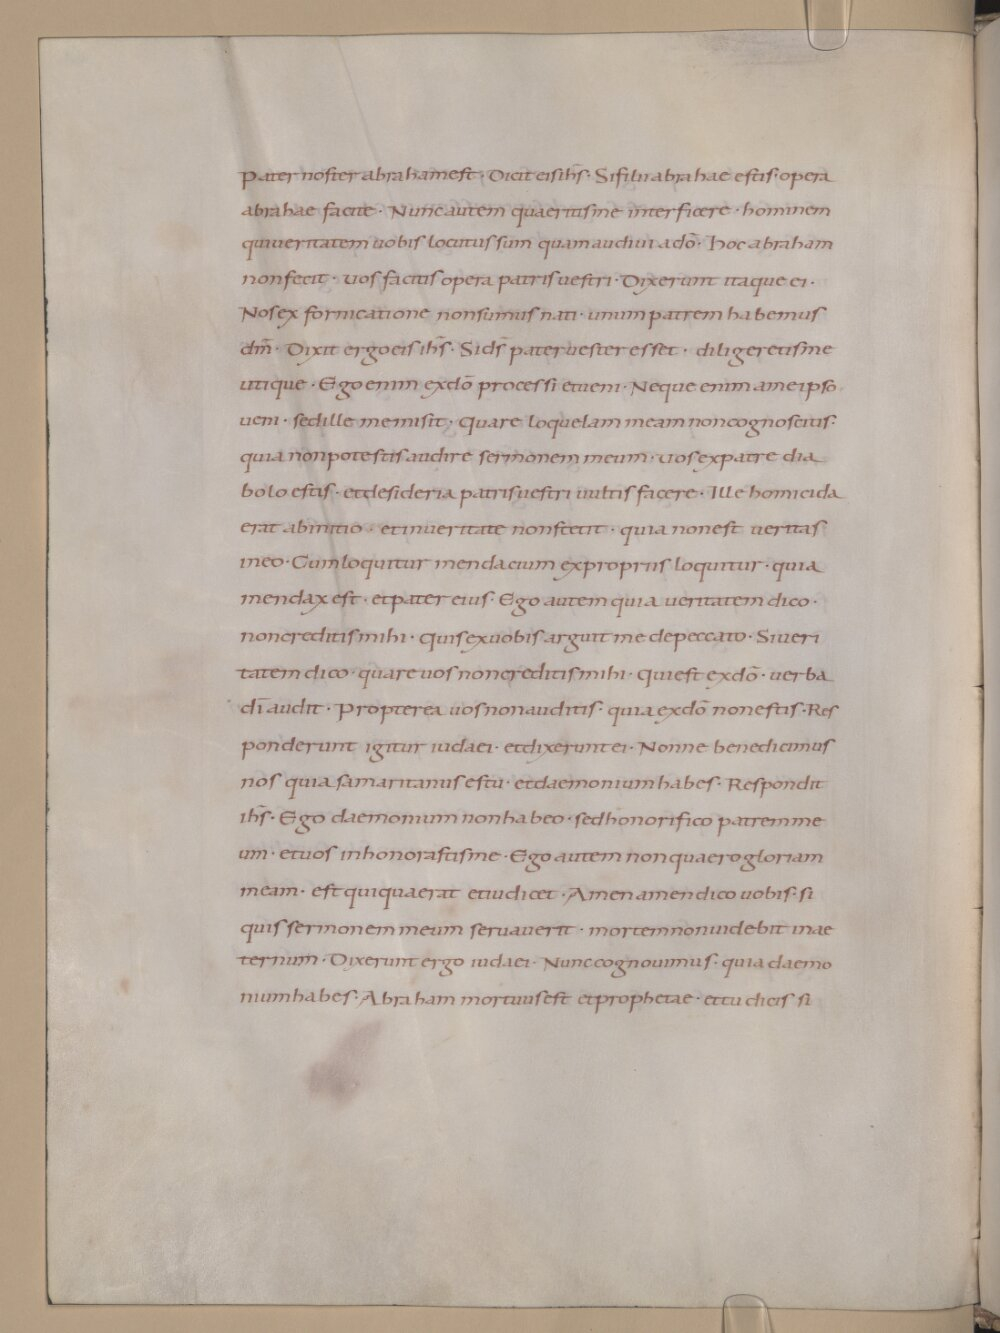 Pater noster abraham est · Dicit eis ih̄s · Si filii abrahae estis · opera
abrahae facite · Nunc autem quaeritis me interficere · hominem
qui ueritatem uobis locutus sum quam audiui a dō · hoc abraham
non fecit · uos facitis opera patris uestri · Dixerunt itaque ei ·
Nos ex fornicatione non sumus nati · unum patrem habemus
dm̄ · Dixit ergo eis ih̄s · Si ds̄ pater uester esset · diligeretis me
utique · Ego enim ex dō processi et ueni · Neque enim a me ipso
ueni · sed ille me misit · Quare loquelam meam non cognoscitis ·
quia non potestis audire sermonem meum · uos ex patre dia
bolo estis · et desideria patris uestri uultis facere · Ille homicida
erat ab initio · et in ueritate non stetit · quia non est ueritas
in eo · Cum loquitur mendacium ex propriis loquitur · quia
mendax est · et pater eius · Ego autem quia ueritatem dico ·
non creditis mihi · Quis ex uobis arguit me de peccato · Si ueri
tatem dico · quare uos non creditis mihi · Qui est ex dō · uerba
dī audit · Propterea uos non auditis · quia ex dō non estis · Res
ponderunt igitur iudaei · et dixerunt ei · Nonne bene dicimus
nos quia samaritanus es tu · et daemonium habes · Respondit
ih̄s · Ego daemonium non habeo · sed honorifico patrem me
um · et uos inhonorastis me · Ego autem non quaero gloriam
meam · est qui quaerat et iudicet · Amen amen dico uobis · si
quis sermonem meum seruauerit · mortem non uidebit in ae
ternum · Dixerunt ergo iudaei · Nunc cognouimus · quia daemo
nium habes · Abraham mortuus est et prophetae · et tu dicis si